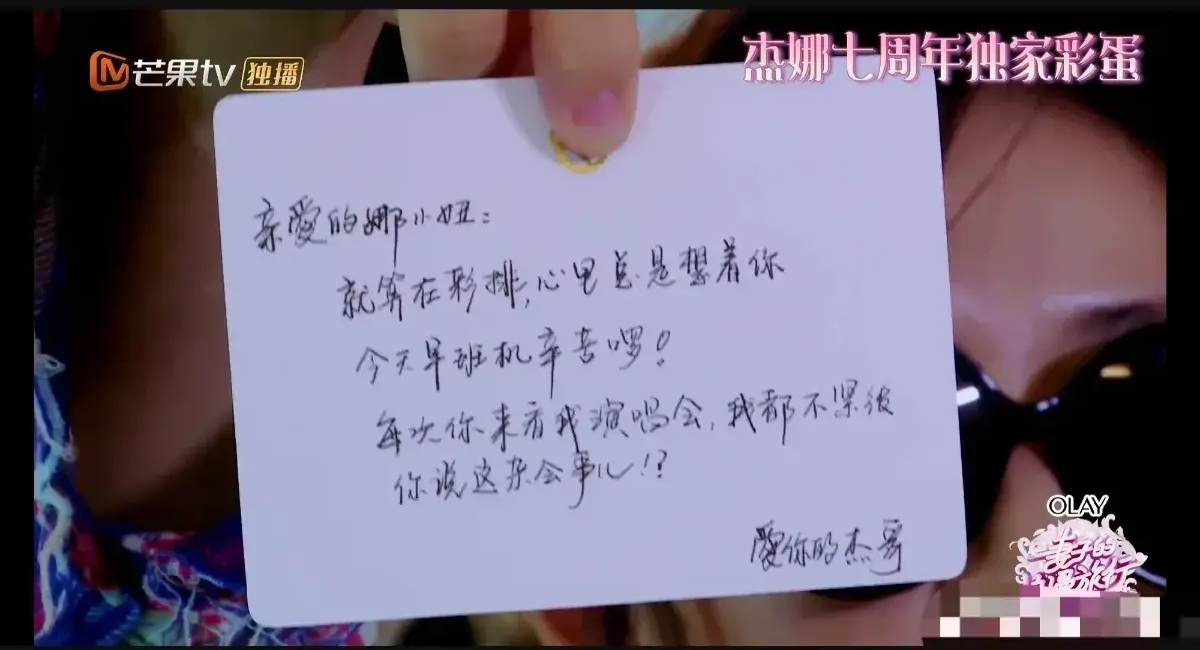 芒果tv 独播
杰娜七周年独家彩蛋
亲愛的娜小妞:
就算在彩排,心里总是想着你
今天早班机辛苦啰!
每次你来看我演唱会,我都不紧张
你说这杂会事儿!?
愛你的杰哥
OLAY
妻子的
浪漫旅行